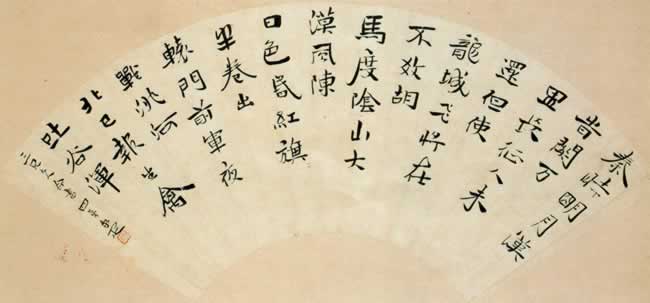 秦時明月漢
旹關万
里長征人未
還但使
龍城飛將在
不教胡
馬度陰山大
漠風陳
日色昏紅旗
半卷出
轅門前軍夜
戰洮河
北已報生擒
吐谷渾